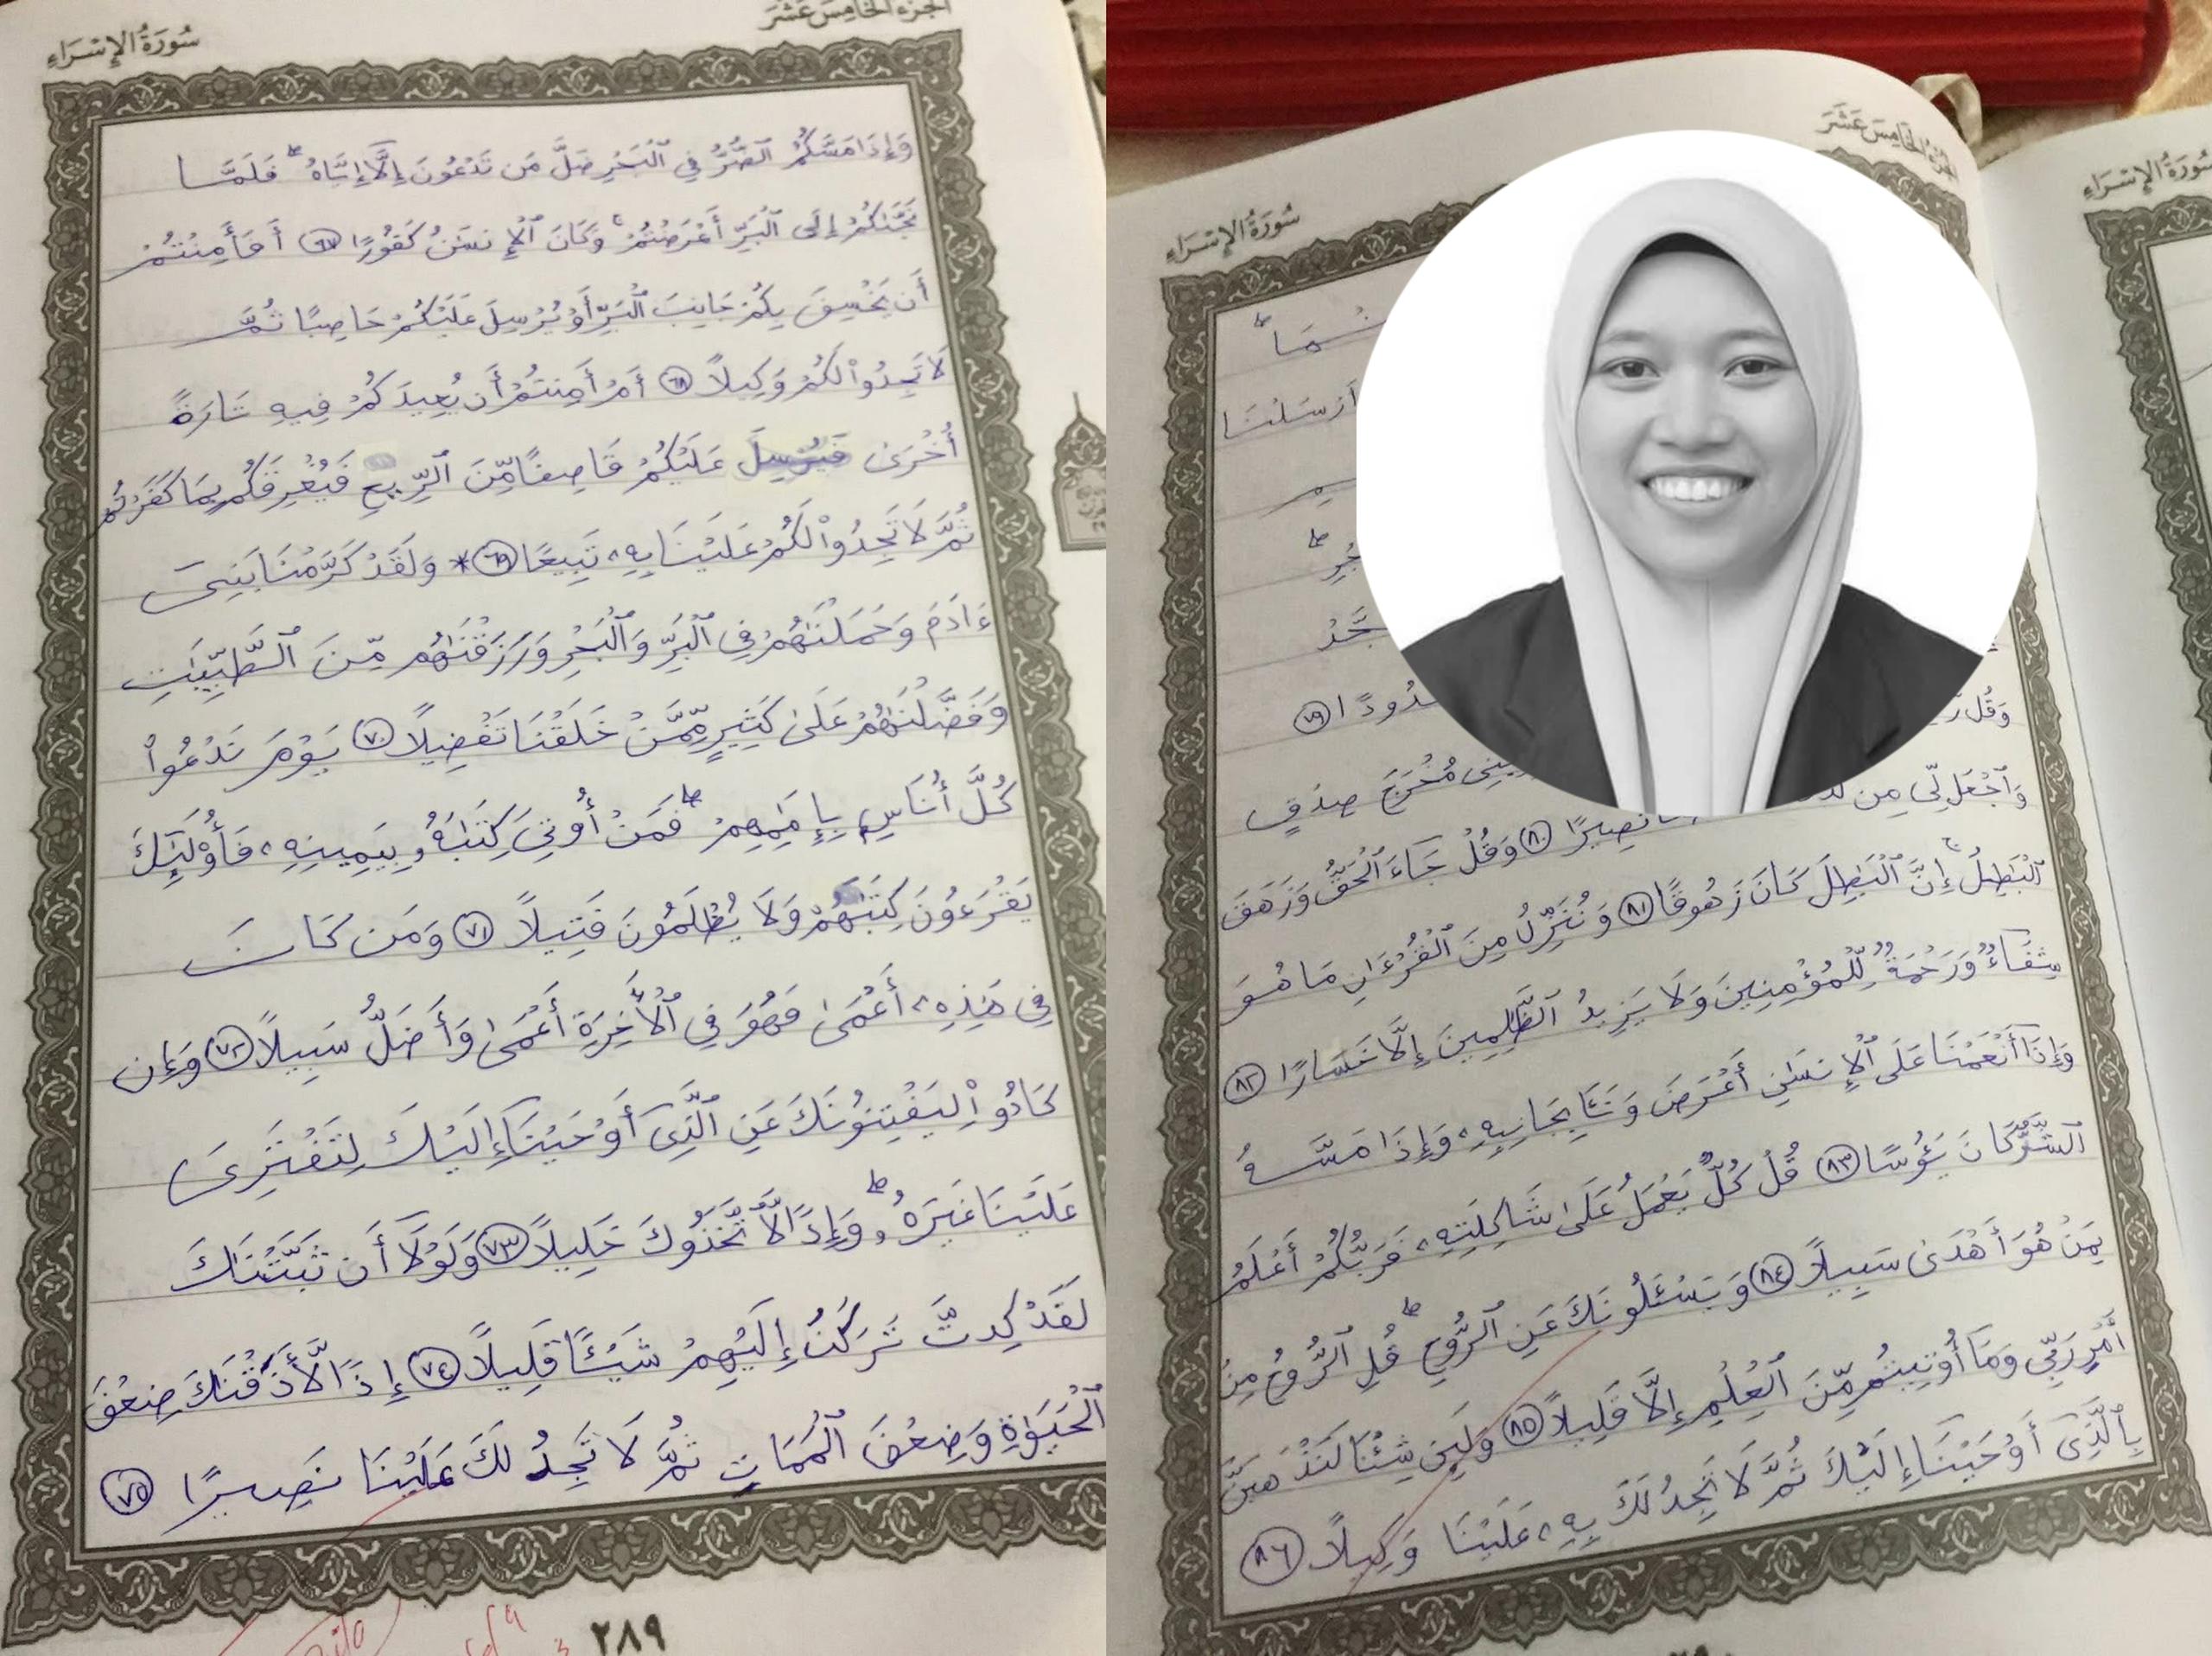 سُورَةُ الإِسْرَاءِ
الجزء الخَامِسَ عَشَرَ
وَإِذَا مَسَّكُمُ ٱلضُّرُّ فِي ٱلْبَحْرِ ضَلَّ مَن تَدْعُونَ إِلَّآ إِيَّاهُ ۖ فَلَمَّا
نَجَّىٰكُمْ إِلَى ٱلْبَرِّ أَعْرَضْتُمْ ۚ وَكَانَ ٱلْإِنسَٰنُ كَفُورًا ٦٧ أَفَأَمِنتُمْ
أَن يَخْسِفَ بِكُمْ جَانِبَ ٱلْبَرِّ أَوْ يُرْسِلَ عَلَيْكُمْ حَاصِبًا ثُمَّ
لَا تَجِدُوا۟ لَكُمْ وَكِيلًا ٦٨ أَمْ أَمِنتُمْ أَن يُعِيدَكُمْ فِيهِ تَارَةً
أُخْرَىٰ فَيُرْسِلَ عَلَيْكُمْ قَاصِفًا مِّنَ ٱلرِّيحِ فَيُغْرِقَكُم بِمَا كَفَرْتُمْ
ثُمَّ لَا تَجِدُوا۟ لَكُمْ عَلَيْنَا بِهِۦ تَبِيعًا ٦٩ * وَلَقَدْ كَرَّمْنَا بَنِىٓ
ءَادَمَ وَحَمَلْنَٰهُمْ فِي ٱلْبَرِّ وَٱلْبَحْرِ وَرَزَقْنَٰهُم مِّنَ ٱلطَّيِّبَٰتِ
وَفَضَّلْنَٰهُمْ عَلَىٰ كَثِيرٍ مِّمَّنْ خَلَقْنَا تَفْضِيلًا ٧٠ يَوْمَ نَدْعُوا۟
كُلَّ أُنَاسٍۭ بِإِمَٰمِهِمْ ۖ فَمَنْ أُوتِىَ كِتَٰبَهُۥ بِيَمِينِهِۦ فَأُو۟لَٰٓئِكَ
يَقْرَءُونَ كِتَٰبَهُمْ وَلَا يُظْلَمُونَ فَتِيلًا ٧١ وَمَن كَانَ
فِي هَٰذِهِۦٓ أَعْمَىٰ فَهُوَ فِي ٱلْأَخِرَةِ أَعْمَىٰ وَأَضَلُّ سَبِيلًا ٧٢ وَإِن
كَادُوا۟ لَيَفْتِنُونَكَ عَنِ ٱلَّذِىٓ أَوْحَيْنَآ إِلَيْكَ لِتَفْتَرِىَ
عَلَيْنَا غَيْرَهُۥ ۖ وَإِذًا لَّٱتَّخَذُوكَ خَلِيلًا ٧٣ وَلَوْلَآ أَن ثَبَّتْنَٰكَ
لَقَدْ كِدتَّ تَرْكَنُ إِلَيْهِمْ شَيْـًٔا قَلِيلًا ٧٤ إِذًا لَّأَذَقْنَٰكَ ضِعْفَ
ٱلْحَيَوٰةِ وَضِعْفَ ٱلْمَمَاتِ ثُمَّ لَا تَجِدُ لَكَ عَلَيْنَا نَصِيرًا ٧٥
٢٨٩
سُورَةُ الإِسْرَاءِ
الجزء الخَامِسَ عَشَرَ
سُورَةُ الإِسْرَاءِ
أَرْسَلْنَا
٧٩
وَقُل
مُخْرَجَ صِدْقٍ
وَٱجْعَل لِّي مِن نَّصِيرًا ٨٠ وَقُلْ جَآءَ ٱلْحَقُّ وَزَهَقَ
ٱلْبَٰطِلُ ۚ إِنَّ ٱلْبَٰطِلَ كَانَ زَهُوقًا ٨١ وَنُنَزِّلُ مِنَ ٱلْقُرْءَانِ مَا هُوَ
شِفَآءٌ وَرَحْمَةٌ لِّلْمُؤْمِنِينَ وَلَا يَزِيدُ ٱلظَّٰلِمِينَ إِلَّا خَسَارًا ٨٢
وَإِذَآ أَنْعَمْنَا عَلَى ٱلْإِنسَٰنِ أَعْرَضَ وَنَـَٔا بِجَانِبِهِۦ وَإِذَا مَسَّهُ
ٱلشَّرُّ كَانَ يَـُٔوسًا ٨٣ قُلْ كُلٌّ يَعْمَلُ عَلَىٰ شَاكِلَتِهِۦ فَرَبُّكُمْ أَعْلَمُ
بِمَنْ هُوَ أَهْدَىٰ سَبِيلًا ٨٤ وَيَسْـَٔلُونَكَ عَنِ ٱلرُّوحِ ۖ قُلِ ٱلرُّوحُ مِنْ
أَمْرِ رَبِّي وَمَآ أُوتِيتُم مِّنَ ٱلْعِلْمِ إِلَّا قَلِيلًا ٨٥ وَلَئِن شِئْنَا لَنَذْهَبَنَّ
بِٱلَّذِىٓ أَوْحَيْنَآ إِلَيْكَ ثُمَّ لَا تَجِدُ لَكَ بِهِۦ عَلَيْنَا وَكِيلًا ٨٦